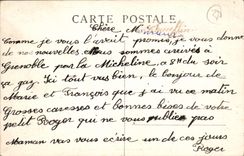 CARTE POSTALE
Chère M
Comme je vous l'avait promis, je vous donne
de nos nouvelles. Nous sommes arrivés à
Grenoble par la Micheline, à 8H du soir
ça gaz. Ici tout vas bien, le bonjour de
Marie et François que j'ai vu ce matin
Grosses caresses et bonnes bises de votre
petit Roger qui ne vous oublies pas
Maman vas vous écrire un de ces jours
Roger